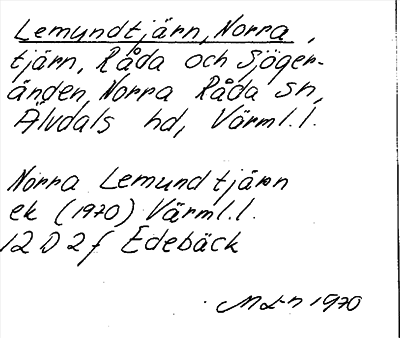 Lemundtjärn, Norra,
tjärn, Råda och Sjöger-
änden, Norra Råda sn,
Älvdals hd, Värml. l.
Norra Lemundtjärn
ek (1970) Värml. l.
12 D 2 f Edebäck
1970